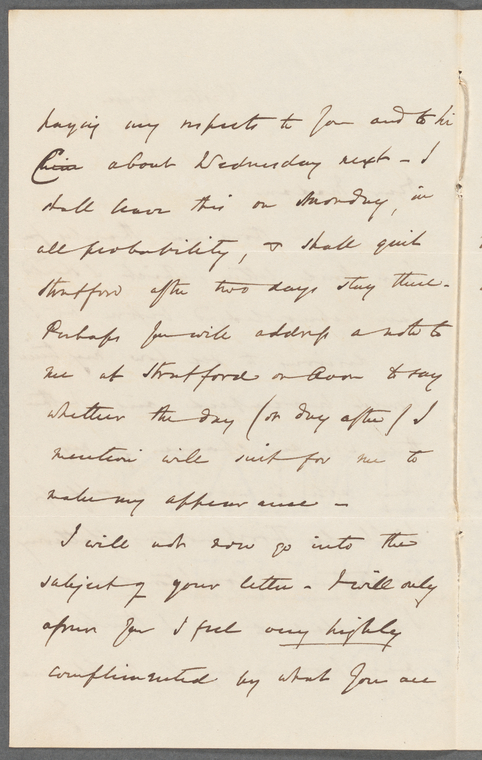 paying my respects to you and to
about Wednesday next - I
shall leave this on Monday, in
all probability, & shall quit
Stratford after two days stay there.
Perhaps you will address a note to
me at Stratford on Avon to say
whether the day (or day after) I
mention will suit for me to
make my appearance -
I will not now go into the
subject of your letter - I will only
assure you I feel very highly
complimented by what you are